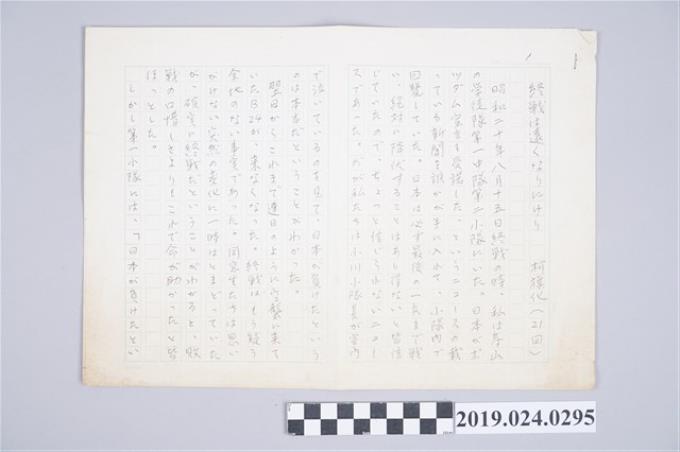 終戦は遠くなりにけり 柯旗化(21回)
昭和二十年八月十五日終戦の時、私は寿山
の学徒隊第一中隊第二小隊にいた。日本がポ
ツダム宣言を受諾した、というニュースの載
っている新聞を誰かが手に入れて、小隊内で
回覧していた。日本は必ず最後の一兵まで戦
い、絶対に降伏することはあり得ないと皆信
じていたので、ちょっと信じられないニュー
スであった。だが私たちは小川小隊長が室内
で泣いているのを見て、日本が負けたという
のは本当だということがわかった。
翌日からこれまで連日のように空襲に来て
いたB24が、来なくなった。終戦はもう疑う
余地のない事実であった。同窓生たちは思い
がけない突然の変化に一時はとまどっていた
が、確実に終戦だということがわかると、敗
戦の口惜しさよりもこれで命が助かったと皆
ほっとした。
しかし第一小隊には、「日本が負けたとい
2019.024.0295